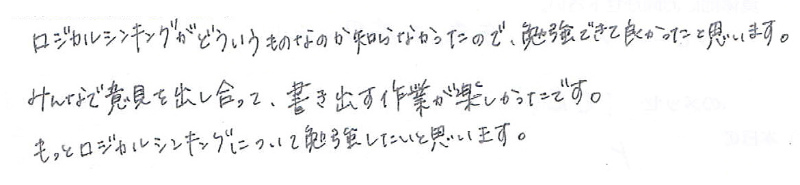 ロジカルシンキングがどういうものなのか知らなかったので、勉強できて良かったと思います。
みんなで意見を出し合って、書き出す作業が楽しかったです。
もっとロジカルシンキングについて勉強したいと思います。